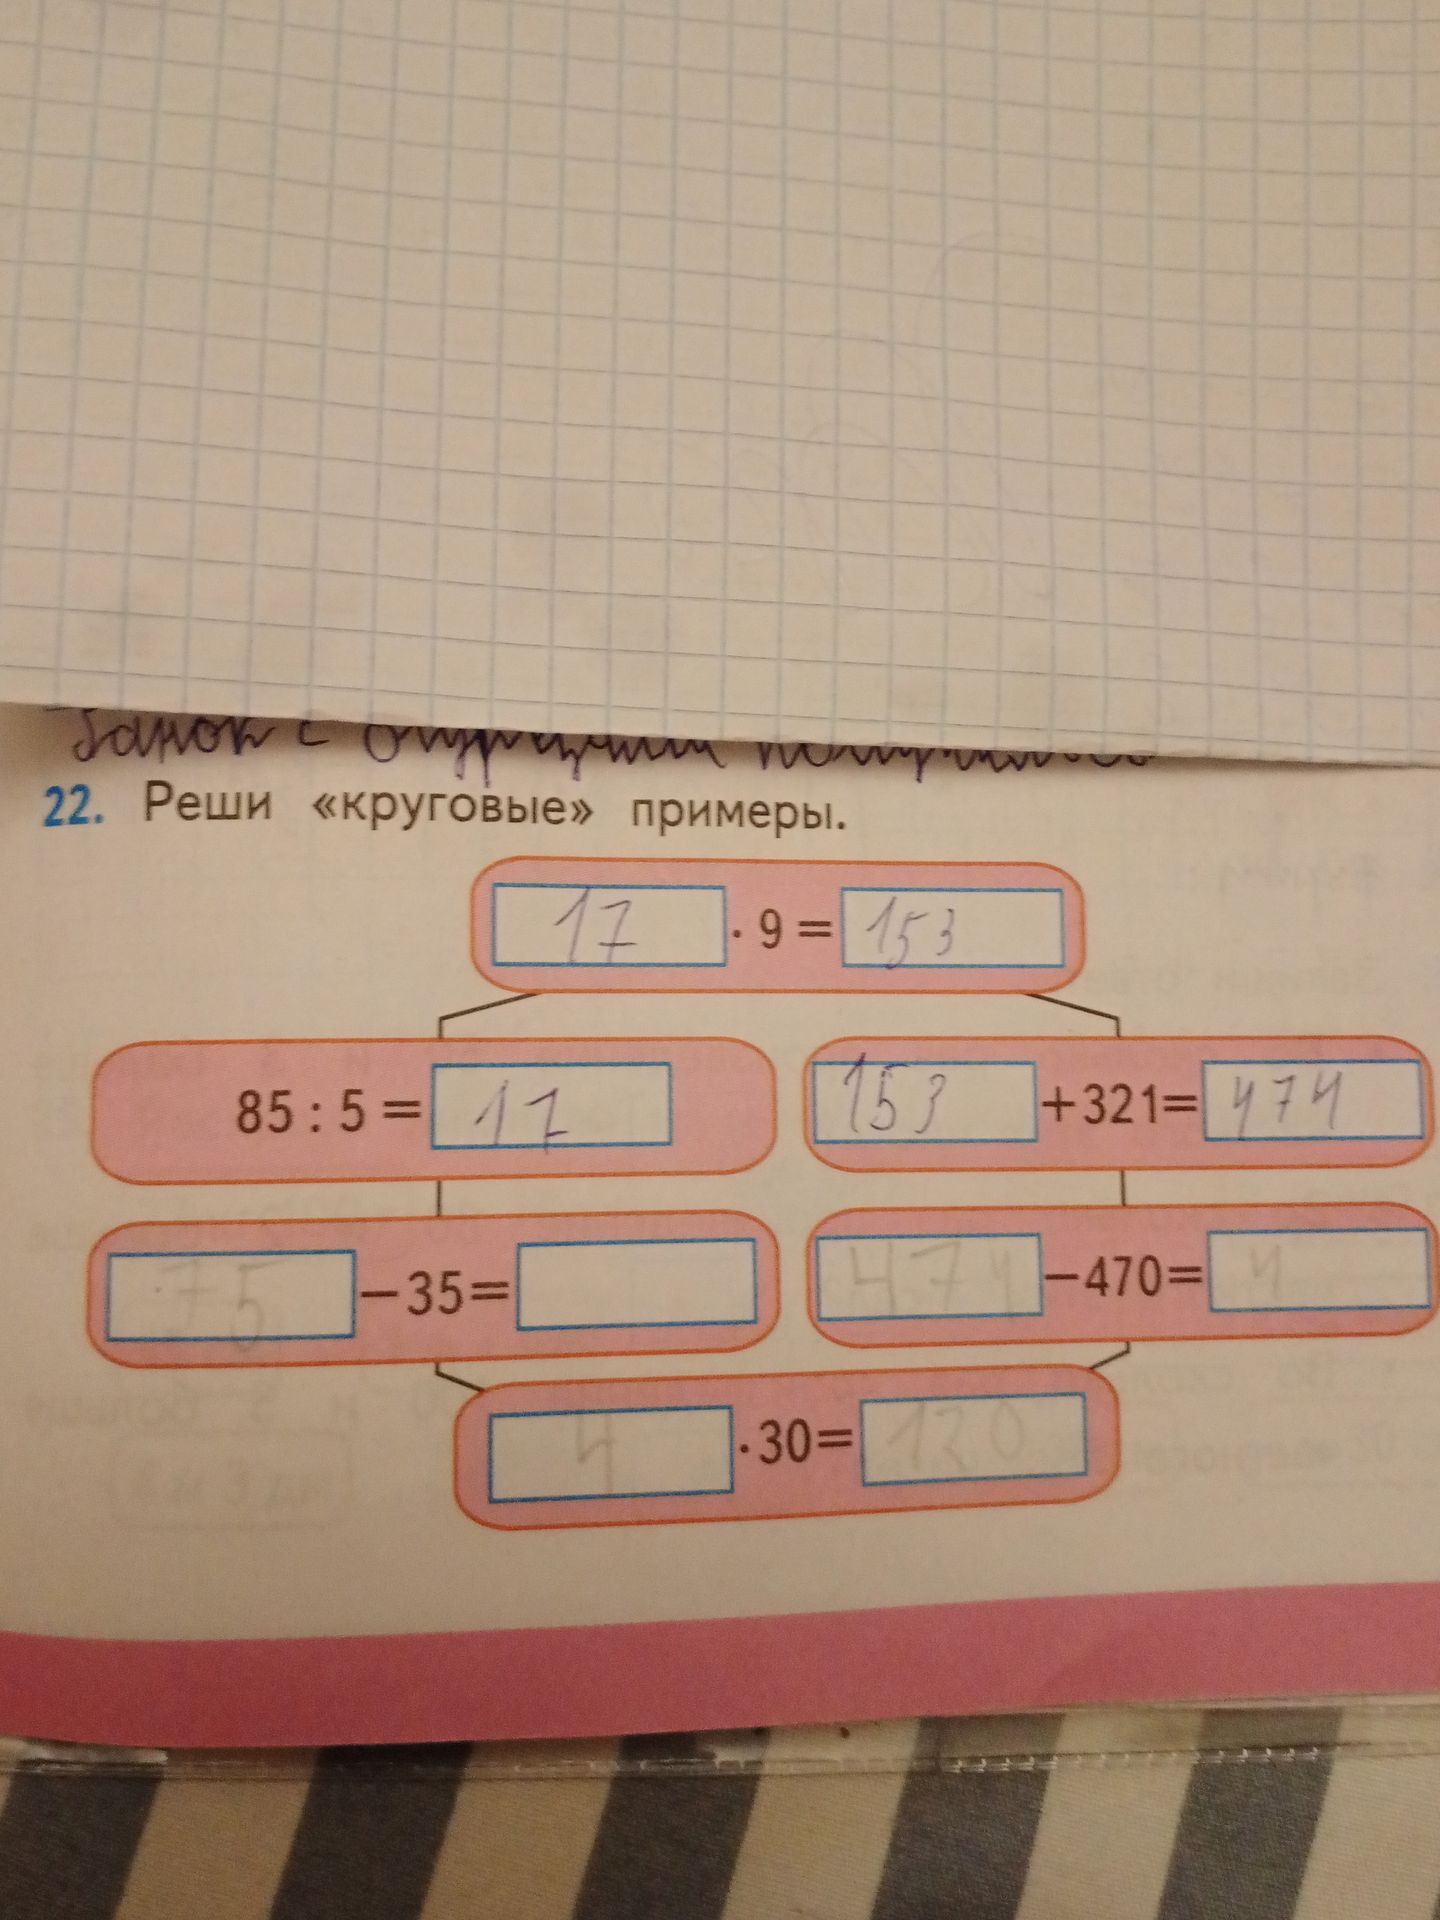 Банок с огурцами получилось
22. Реши «круговые» примеры.
17 · 9 = 153
85 : 5 = 17
153 +321= 474
75 –35=
474 –470= 4
4 ·30= 120